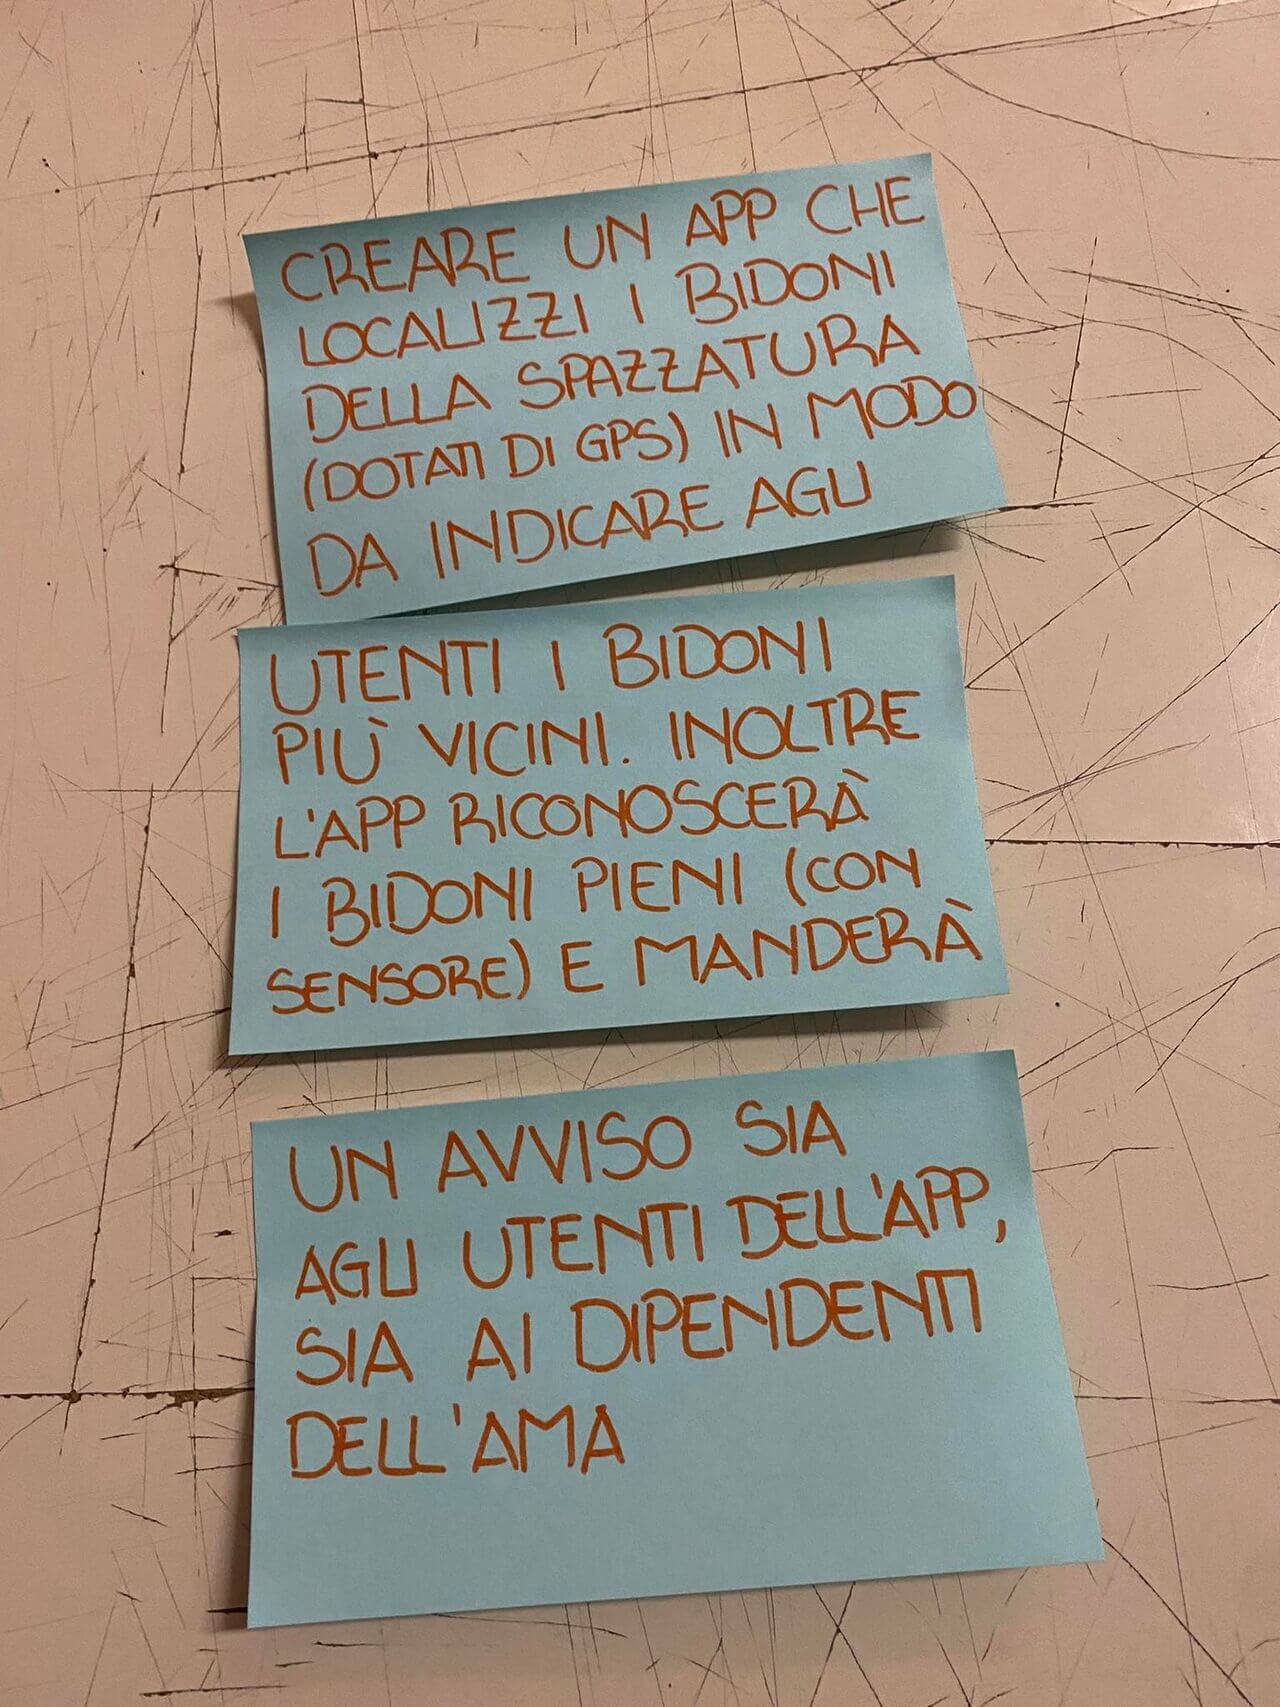 CREARE UN APP CHE
LOCALIZZI I BIDONI
DELLA SPAZZATURA
(DOTATI DI GPS) IN MODO
DA INDICARE AGLI
UTENTI I BIDONI
PIÙ VICINI. INOLTRE
L'APP RICONOSCERÀ
I BIDONI PIENI (CON
SENSORE) E MANDERÀ
UN AVVISO SIA
AGLI UTENTI DELL'APP,
SIA AI DIPENDENTI
DELL'AMA